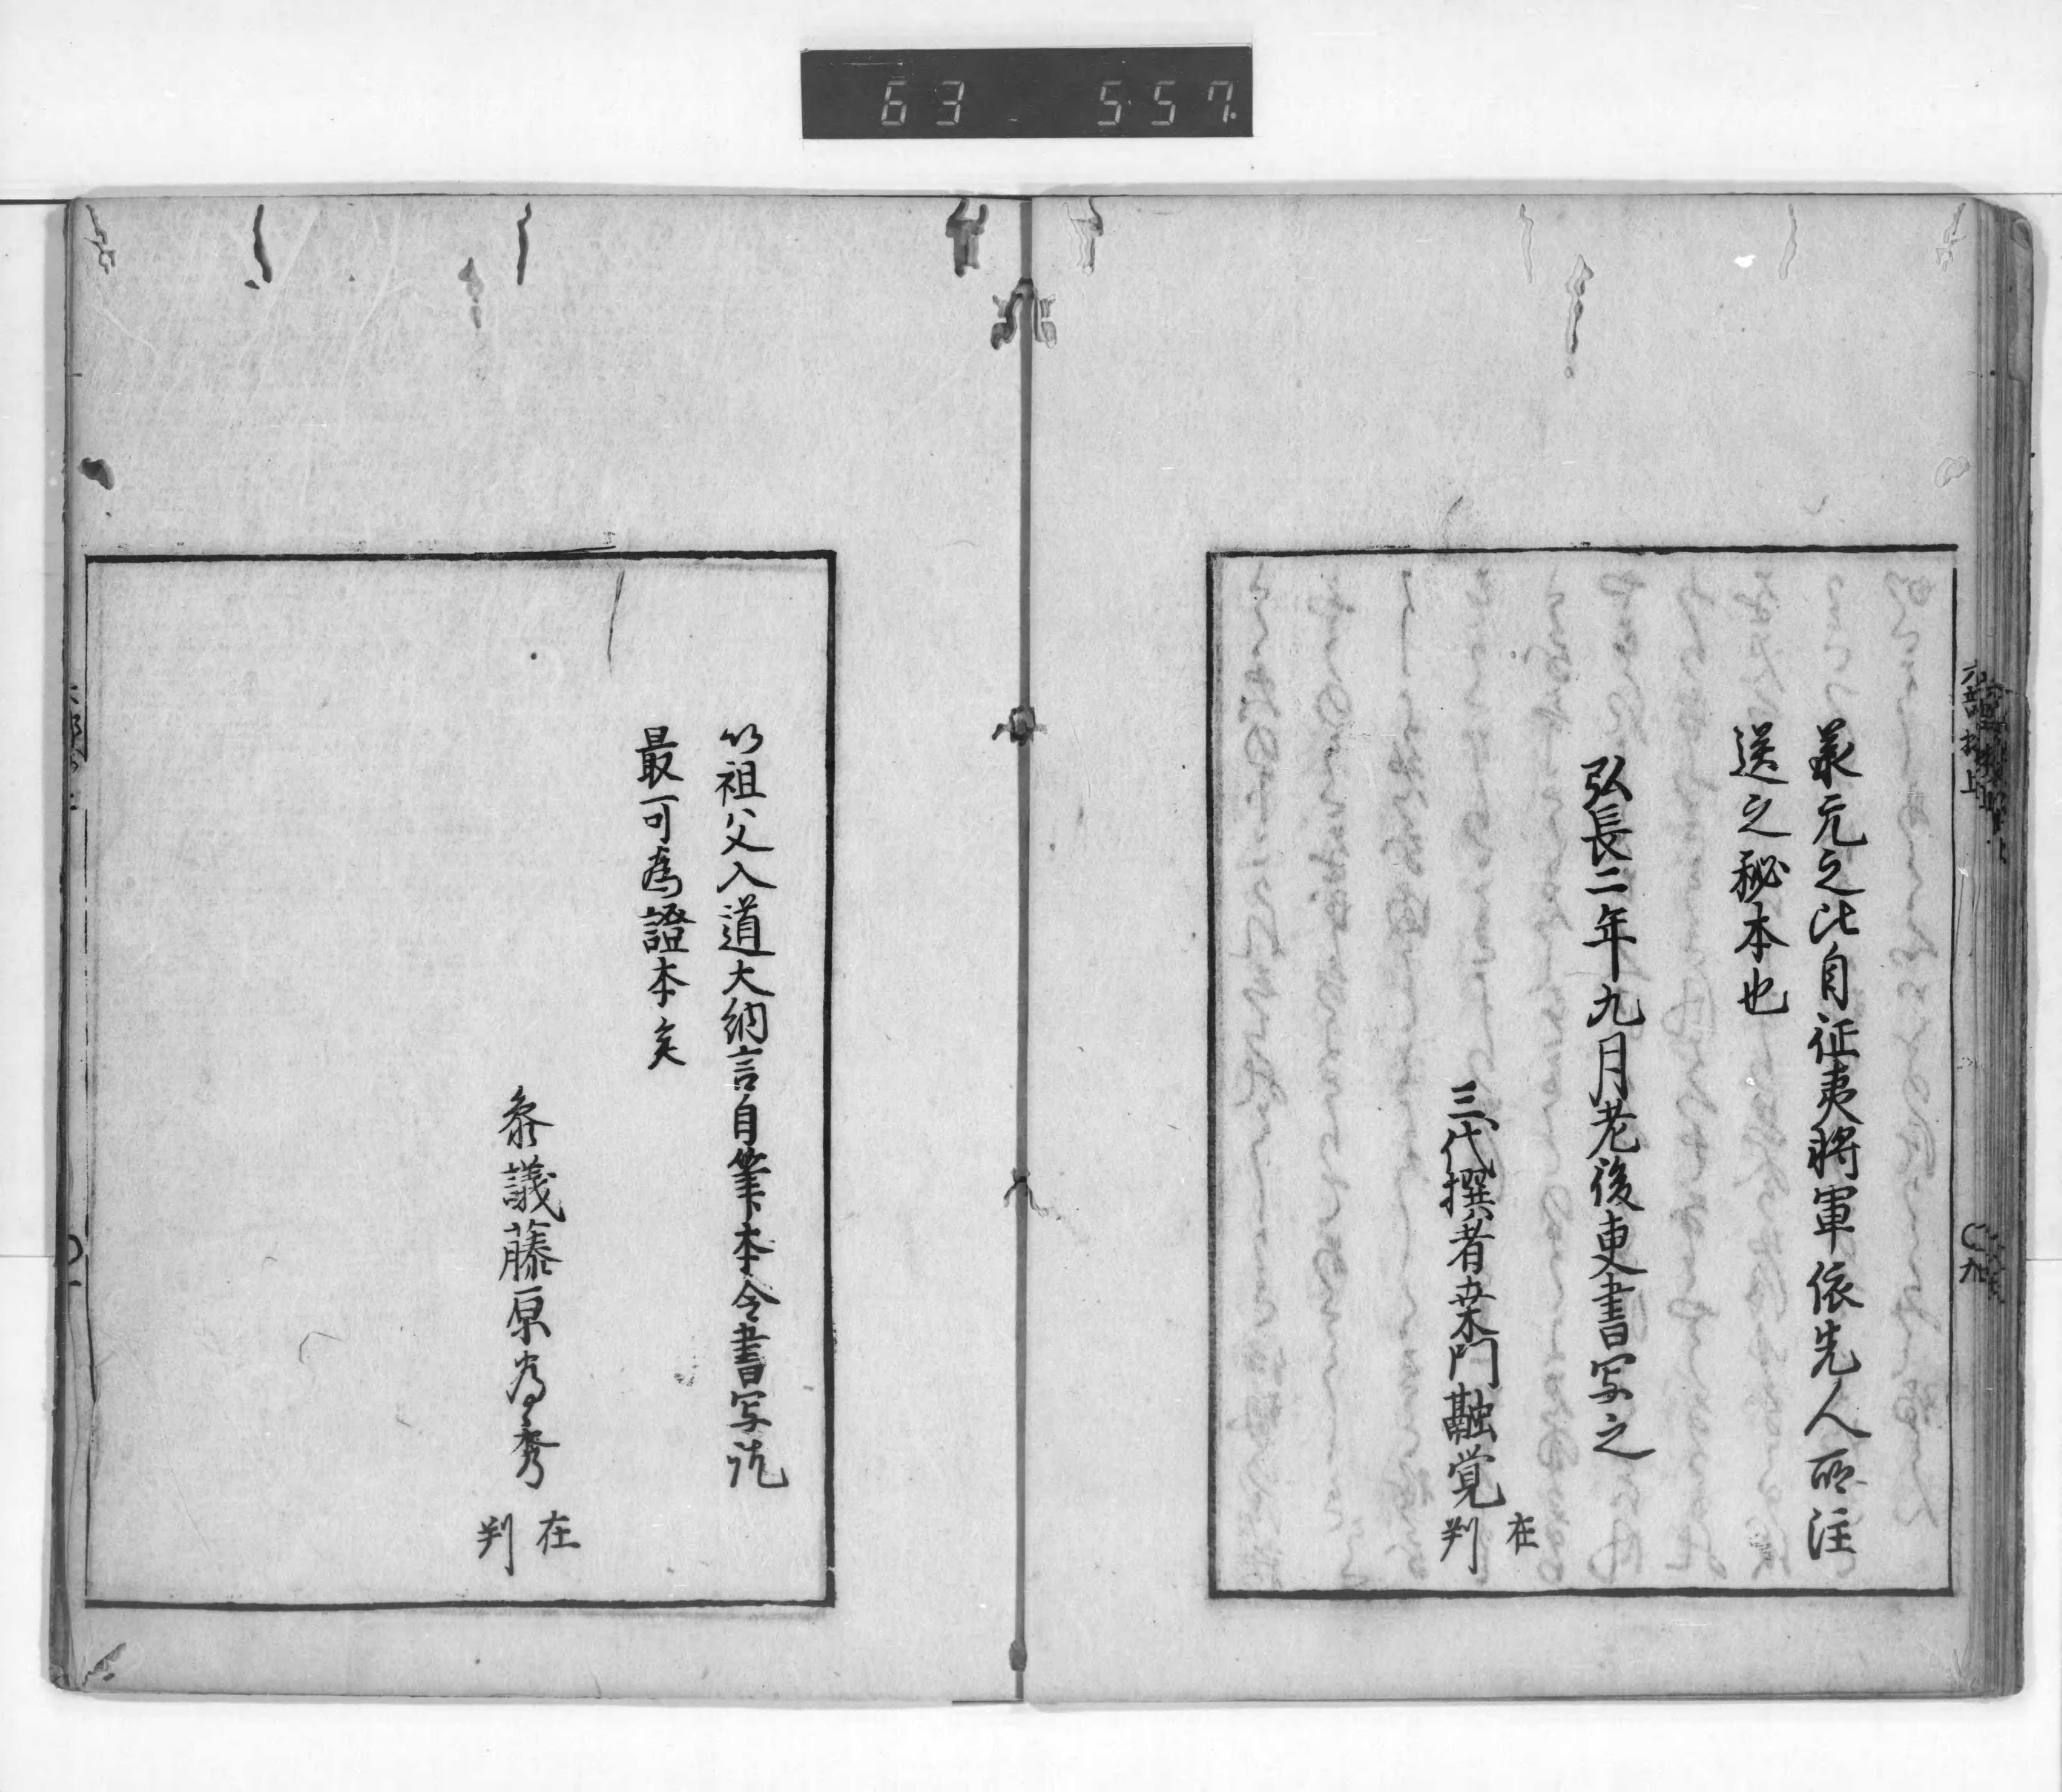 63 557.
承元之比自征夷將軍依先人所注
送之秘本也
弘長二年九月老後更書写之
三代撰者桒門融覚 在判
以祖父入道大納言自筆本令書写訖
最可為證本矣
参議藤原為秀 在判